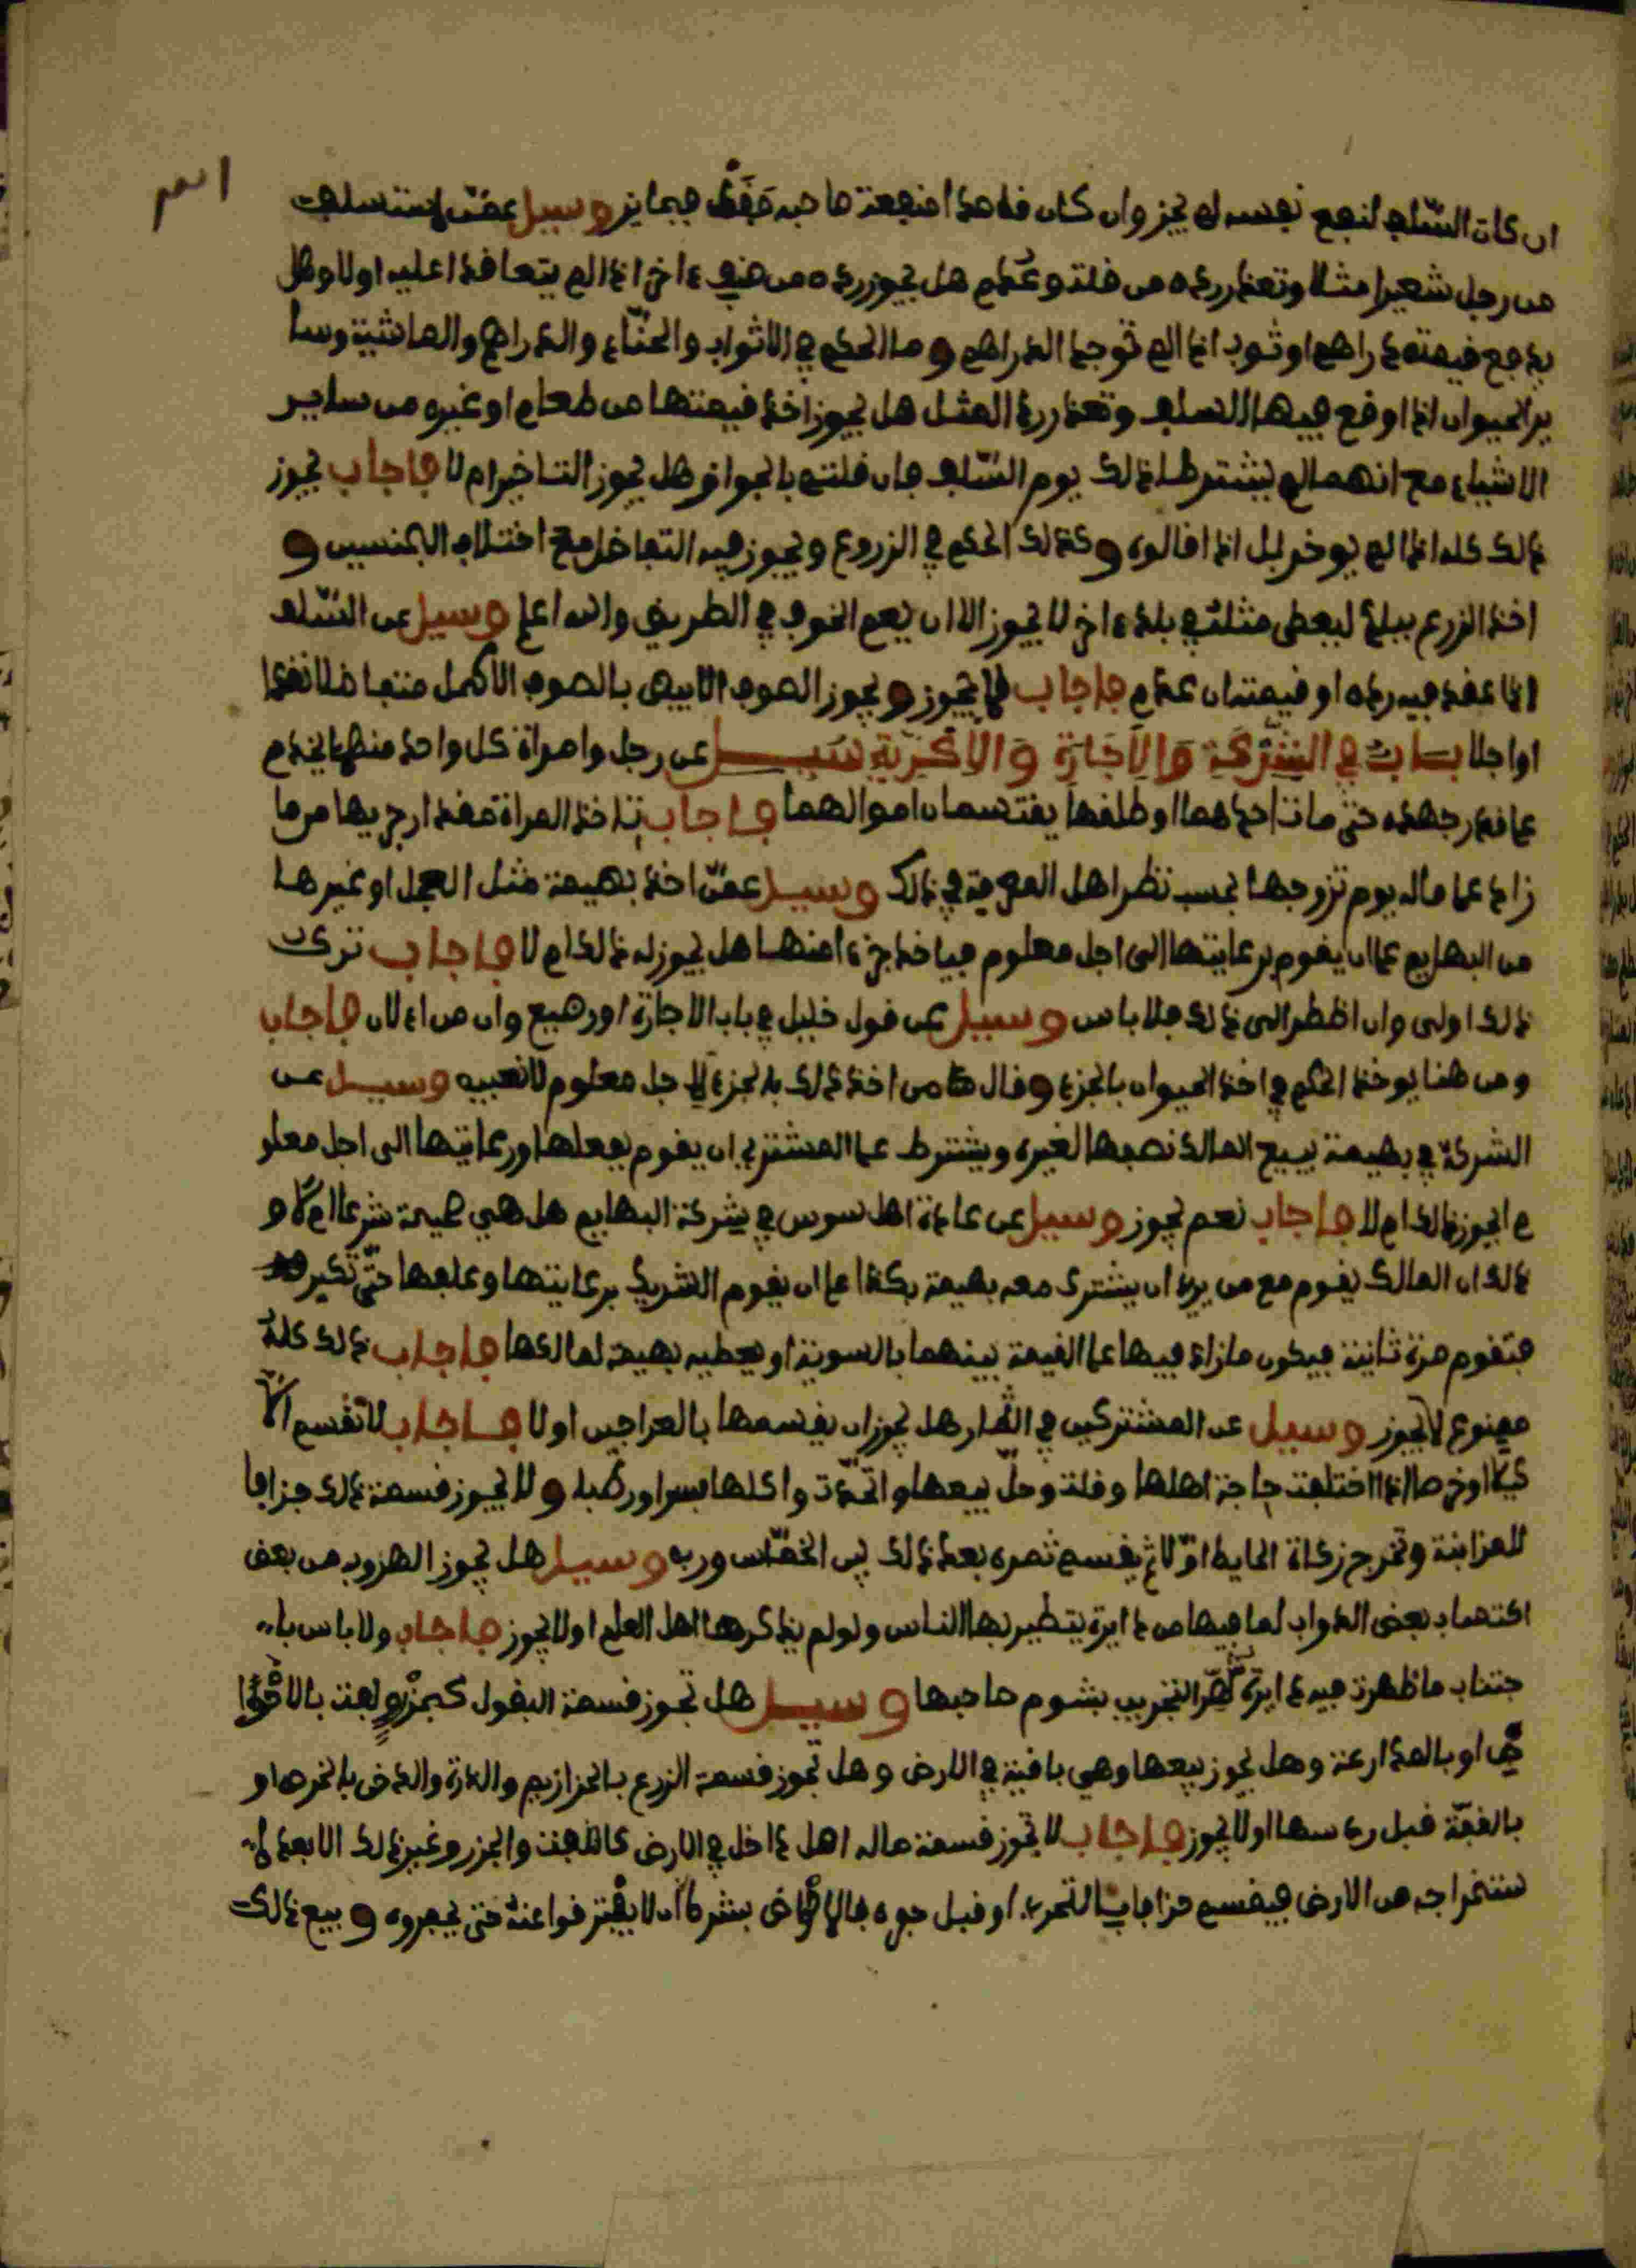 ان كان السّلف لنفع نفسه لم يجز وان كان قاصدا منفعة صاحبه فقط فجايز وسيل عمّن استسلف
من رجل شعيرا مثلا وتعذر رده من قلته وعدم هل يجوز رده من صنف ءاخر اذا لم يتعاقدا عليه اولا وهل
يدفع قيمته دراهم او ثوب اذا لم توجد الدراهم وما الحكم في الاثواب والحنّاء والدراهم والماشية وسا
ير الحيوان اذا وقع فيها السلف وتعذر رد المثل هل يجوز اخذ قيمتها من طعام او غيره من ساير
الاشياء مع انهما لم يشترطا ذالك يوم السّلف فان قلتم بالجواز وهل يجوز التاخير ام لا فاجاب يجوز
ذالك كله اذا لم يوخر لمل اذا قالوه وكذالك الحكم في الزروع ويجوز فيه التفاضل مع اختلاف الجنسين و
اخذ الزرع ببلد ليعطى مثله في بلد ءاخر لا يجوز الا ان يعم الخوف في الطريق والله اعلم وسيل عن السّلف
اذا عقد فيه رده او قيمته ان عدم فاجاب لا يجوز ويجوز الصوف الابيض بالصوف الاكحل متفاضلا نقدا
او اجلا بـاب في الشركة والاجارة والاكرية سيـل عن رجل وامراة كل واحد منهما يخدم
على قدر جهده حتى مات احدهما او طلقها يقتسمان اموالهما فاجاب تاخذ المراة مقدار جريها من ما
زاد على ماله يوم تزوجها بحسب نظر اهل المعرفة في ذالك وسيل عمّن اخذ بهيمة مثل العجل او غيرها
من البهايم على ان يقوم برعايتها الى اجل معلوم فياخذ جزءا منها هل يجوز له ذالك ام لا فاجاب ترك
ذالك اولى وان اظطر الى ذالك فلا باس وسيل عن قول خليل في باب الاجارة او رضيع وان من الان فاجاب
ومن هنا يوخذ الحكم في اخذ الحيوان بالجزء وقال من اخذ ذلك بالجزء لاجل معلوم لا نعيبه وسيـل عن
الشركة في بهيمة يبيع المالك نصفها لغيره ويشترط على المشتري ان يقوم بعلفها ورعايتها الى اجل معلو
م ايجوز ذالك ام لا فاجاب نعم يجوز وسيل عن عادة اهل سوس في شركة البهايم هل هي صحيحة شرعا ام لا و
ذالك ان المالك يقوم مع من يريد ان يشترى معه بهيمة بكذا على ان يقوم الشريك برعايتها وعلفها حتّى تكبر
فتقوم مرة ثانية فيكون ما زاد فيها على القيمة بينهما بالسوية او يعطيه بهيمة لمالكها فاجاب ذالك كله
ممنوع لا يجوز وسيل عن المشتركين في الثمار هل يجوز ان يقسمها بالعراجين اولا فـاجاب لا تقسم الا
كيلا او خرصا اذا اختلفت حاجة اهلها وقلت وحلّ بيعها واتحدت واكلها بسرا ورطبا ولا يجوز قسمة ذالك جزافا
للمزابنة وتخرج زكاة الحايط اوّلا ثم يقسم ثمره بعد ذالك بين الخمّاس وربه وسيل هل يجوز الهروب من بعض
اكتساب بعض الدواب لما فيها من دايرة يتطير بها الناس ولولم يذكرها اهل العلم اولا يجوز فاجاب ولا باس با
جتناب ما ظهرت فيه دايرة التجريب بشوم صاحبها وسيـل هل تجوز قسمة البقول كجزر ولفت بالاحو
ض او بالمذارعة وهل يجوز بيعها وهي باقية في الارض وهل تجوز قسمة الزرع بالحزازيم والذرة والدخن بالخرص او
بالقفّة قبل درسها اولا يجوز فاجاب لا تجوز قسمة ماله اصل داخل في الارض كاللفت والجزر وغير ذالك الا بعد ا
ستخراجه من الارض فيقسم جزافا بالتحري او قبل بشرط ان لا يفترقوا عنه حتى يجروه وبيع ذالك